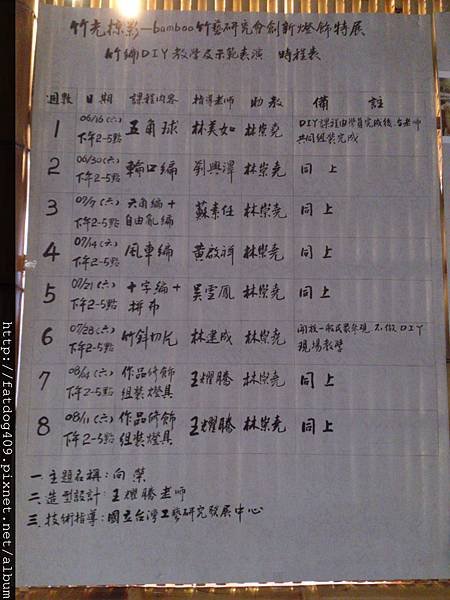 竹光掠影—bamboo竹藝研究會創新燈飾特展
竹編DIY教學及示範表演 時程表
週數 日期 課程內容 指導老師 助教 備註
1 06/16(六) 下午2-5點 五角球 林美如 林崇堯 DIY課程由學員完成後,各老師
共同組裝完成
2 06/30(六) 下午2-5點 輪口編 劉興澤 林崇堯 同上
3 07/7(六) 下午2-5點 六角編+ 自由亂編 蘇素任 林崇堯 同上
4 07/14(六) 下午2-5點 風車編 黃啟祥 林崇堯 同上
5 07/21(六) 下午2-5點 十字編+ 拼布 吳雪鳳 林崇堯 同上
6 07/28(六) 下午2-5點 竹斜切片 林建成 林崇堯 開放一般民眾參觀 不做DIY
現場教學
7 08/4(六) 下午2-5點 作品修飾 組裝燈具 王燿勝 林崇堯 同上
8 08/11(六) 下午2-5點 作品修飾 組裝燈具 王燿勝 林崇堯 同上
一.主題名稱:向榮
二.造型設計:王燿勝老師
三.技術指導:國立台灣工藝研究發展中心
http://fatdog409.pixnet.net/album